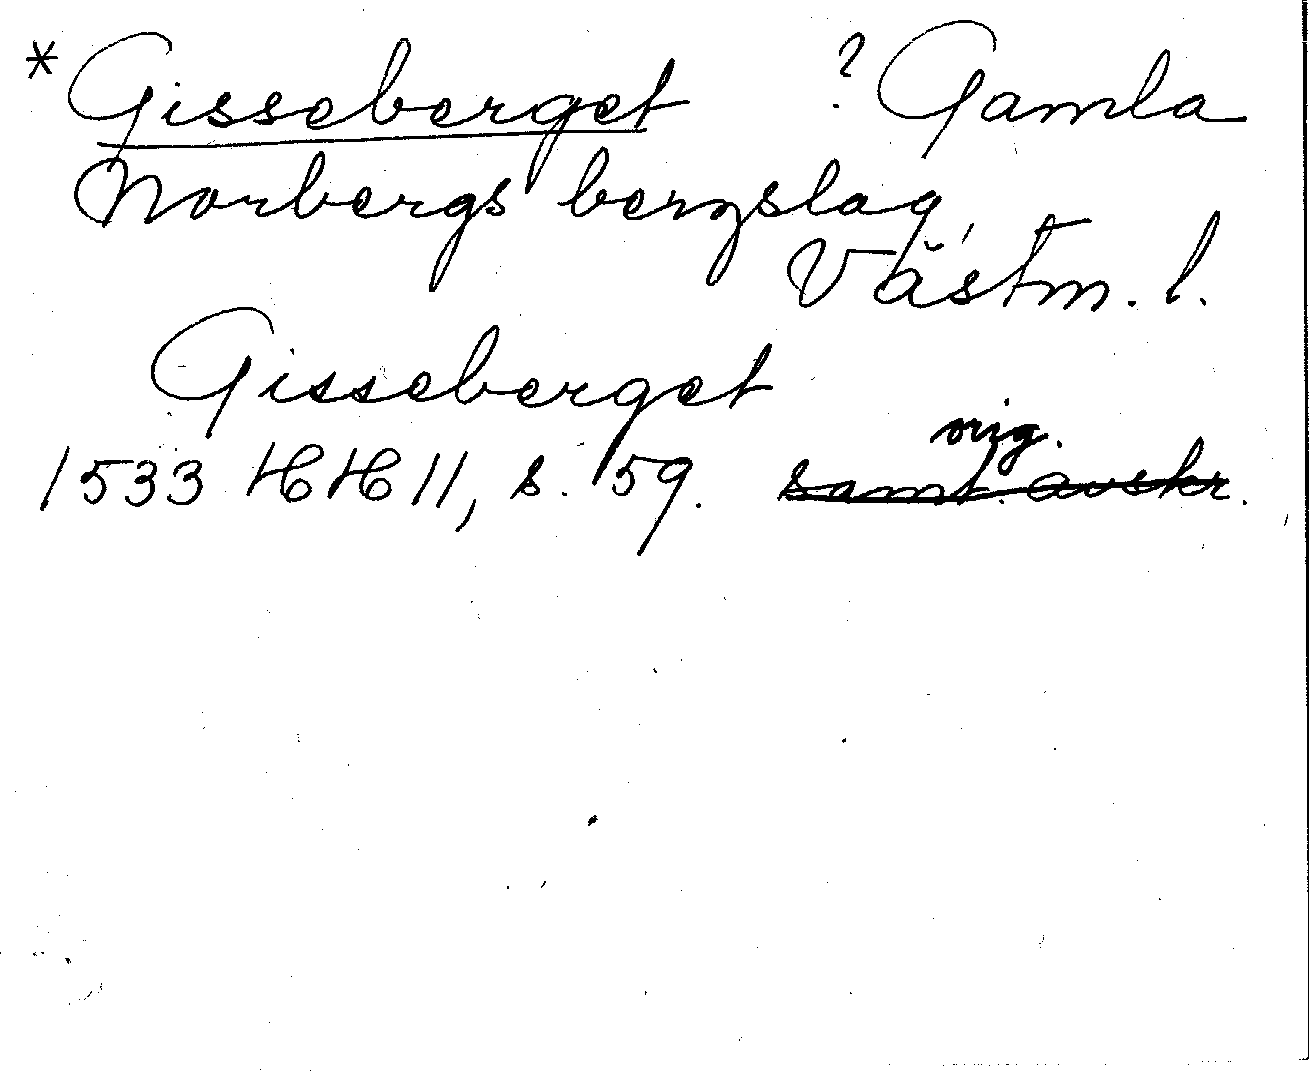 *Gisseberget ? Gamla
Norbergs bergslag,
Västm. l.
Gisseberget
orig.
1533 HH 11, s. 59. samt. avskr.